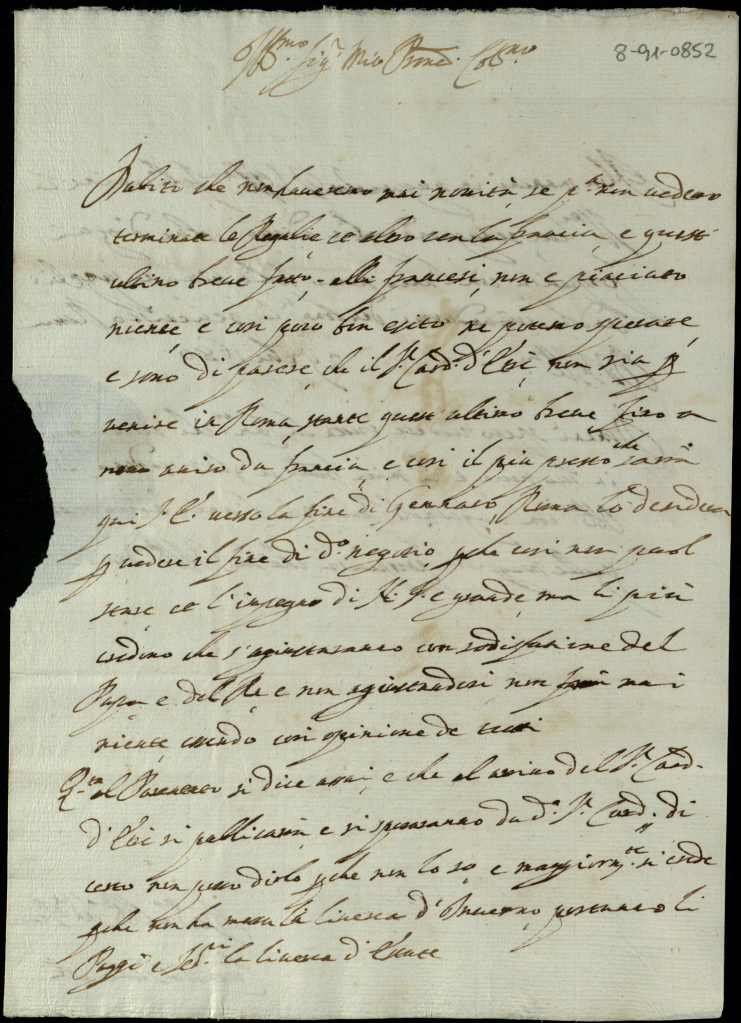 Ill.mo Sig.r Mio Pron.e Col.mo
8-91-0852
Dubiti che non haveremo mai novità, se p.a non vedemo
terminate le Regalie et altro con la francia, e questo
ultimo breve fatto alli francesi, non è piaciuto
niente, e così poco bon esito ne potemo sperare
e sono di parere, che il S.r Card. d'Este non sia p
venire in Roma, stante questo ultimo breve, fino a
novo aviso da francia, e così il più presto che sarà
qui S. E. verso la fine di Gennaro, Roma lo desidera
p vedere il fine di d.o negozio, p che così non puol
stare et l'impegno di è grande, ma li più
credono che s'agiusteranno con sodisfatione del
Papa e del Re, e non agiustandosi non mai
niente, essendo così opinione de tutti
Q.to al Parentato si dice assai, e che al arrivo del S.r Card.
d'Este si publicarà, e si sperano da d.o S.r Card. di
certo non posso dirlo p che non lo so, e maggiorm.te si crede
p che non ha messa la livrea d'Inverno, portando li
Paggi e Ser.ri la livrea d'Estate